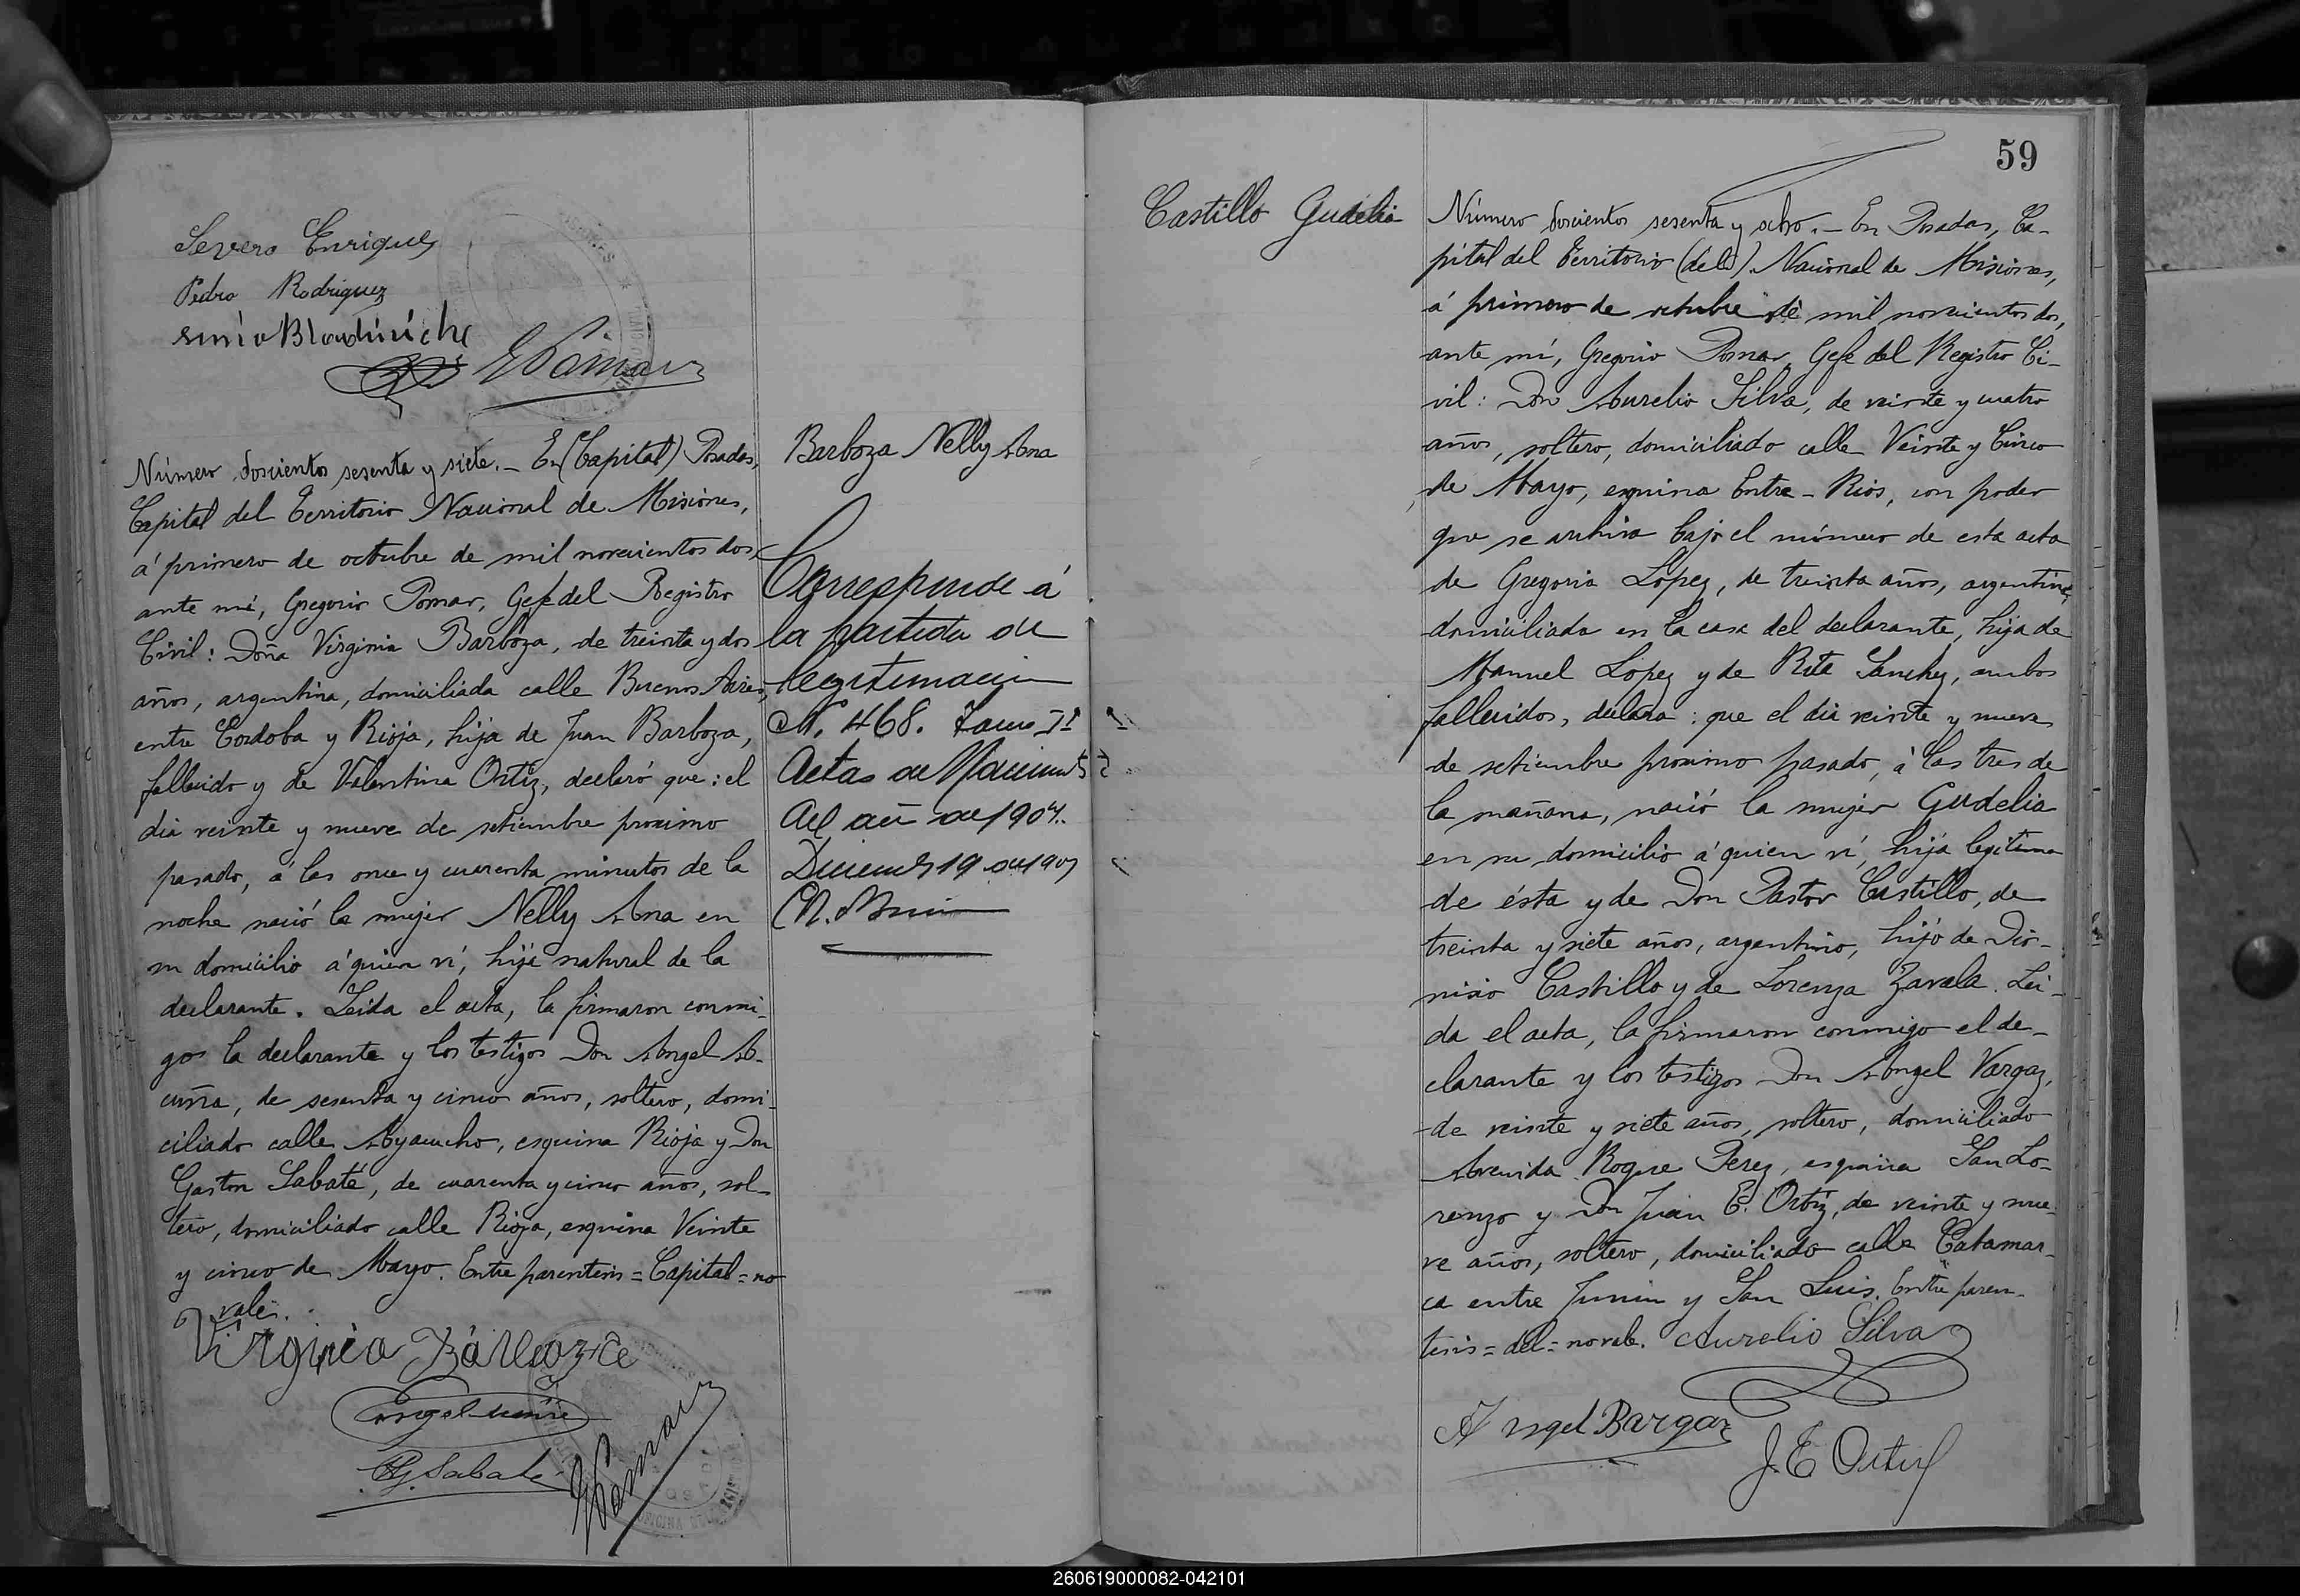 Severo Enriquez
Pedro Rodriguez
G Pomar
Número doscientos sesenta y siete.— En (Capital) Posadas,
Capital del Territorio Nacional de Misiones,
á primero de octubre de mil novecientos dos,
ante mí, Gregorio Pomar, Gefe del Registro
Civil: Doña Virginia Barboza, de treinta y dos
años, argentina, domiciliada calle Buenos Aires,
entre Cordoba y Rioja, hija de Juan Barboza,
fallecido y de Valentina Ortiz, declaró que: el
dia veinte y nueve de setiembre proximo
pasado, á las once y cuarenta minutos de la
noche nació la mujer Nelly Ana en
su domicilio á quien ví, hija natural de la
declarante. Leida el acta, la firmaron conmi-
go la declarante y los testigos Don Angel A-
cuña, de sesenta y cinco años, soltero, domi-
ciliado calle Ayacucho, esquina Rioja y Don
Gaston Sabaté, de cuarenta y cinco años, sol-
tero, domiciliado calle Rioja, esquina Veinte
y cinco de Mayo. Entre parentesis = Capital = no
vale.
Virginia Barboza
Angel Acuña
G. Sabaté
G Pomar
Barboza Nelly Ana
Corresponde á
la partida de
legitimacion
N. 468. Tomo II
Actas de Nacimients
del año de 1904.
Diciembre 19 de 1904
59
Castillo Gudelia
Número doscientos sesenta y ocho.— En Posadas, Ca-
pital del Territorio (del) Nacional de Misiones,
á primero de octubre de mil novecientos dos,
ante mí, Gregorio Pomar, Gefe del Registro Ci-
vil: Don Aurelio Silva, de veinte y cuatro
años, soltero, domiciliado calle Veinte y Cinco
de Mayo, esquina Entre-Rios, con poder
que se archiva bajo el número de esta acta
de Gregoria Lopez, de treinta años, argentina,
domiciliada en la casa del declarante, hija de
Manuel Lopez y de Rita Sanchez, ambos
fallecidos, declara: que el dia veinte y nueve
de setiembre proximo pasado, á las tres de
la mañana, nació la mujer Gudelia
en su domicilio á quien ví, hija legitima
de ésta y de Don Pastor Castillo, de
treinta y siete años, argentino, hijo de Dio-
nisio Castillo y de Lorenza Zavala. Lei-
da el acta, la firmaron conmigo el de-
clarante y los testigos Don Angel Vargaz,
de veinte y siete años, soltero, domiciliado
Avenida Roque Perez, esquina San Lo-
renzo y Don Juan E. Ortiz, de veinte y nue-
ve años, soltero, domiciliado calle Catamar-
ca entre Junin y San Luis. Entre paren-
tesis = del = no vale. Aurelio Silva
Angel Bargaz
J. E Ortiz
260619000082-042101